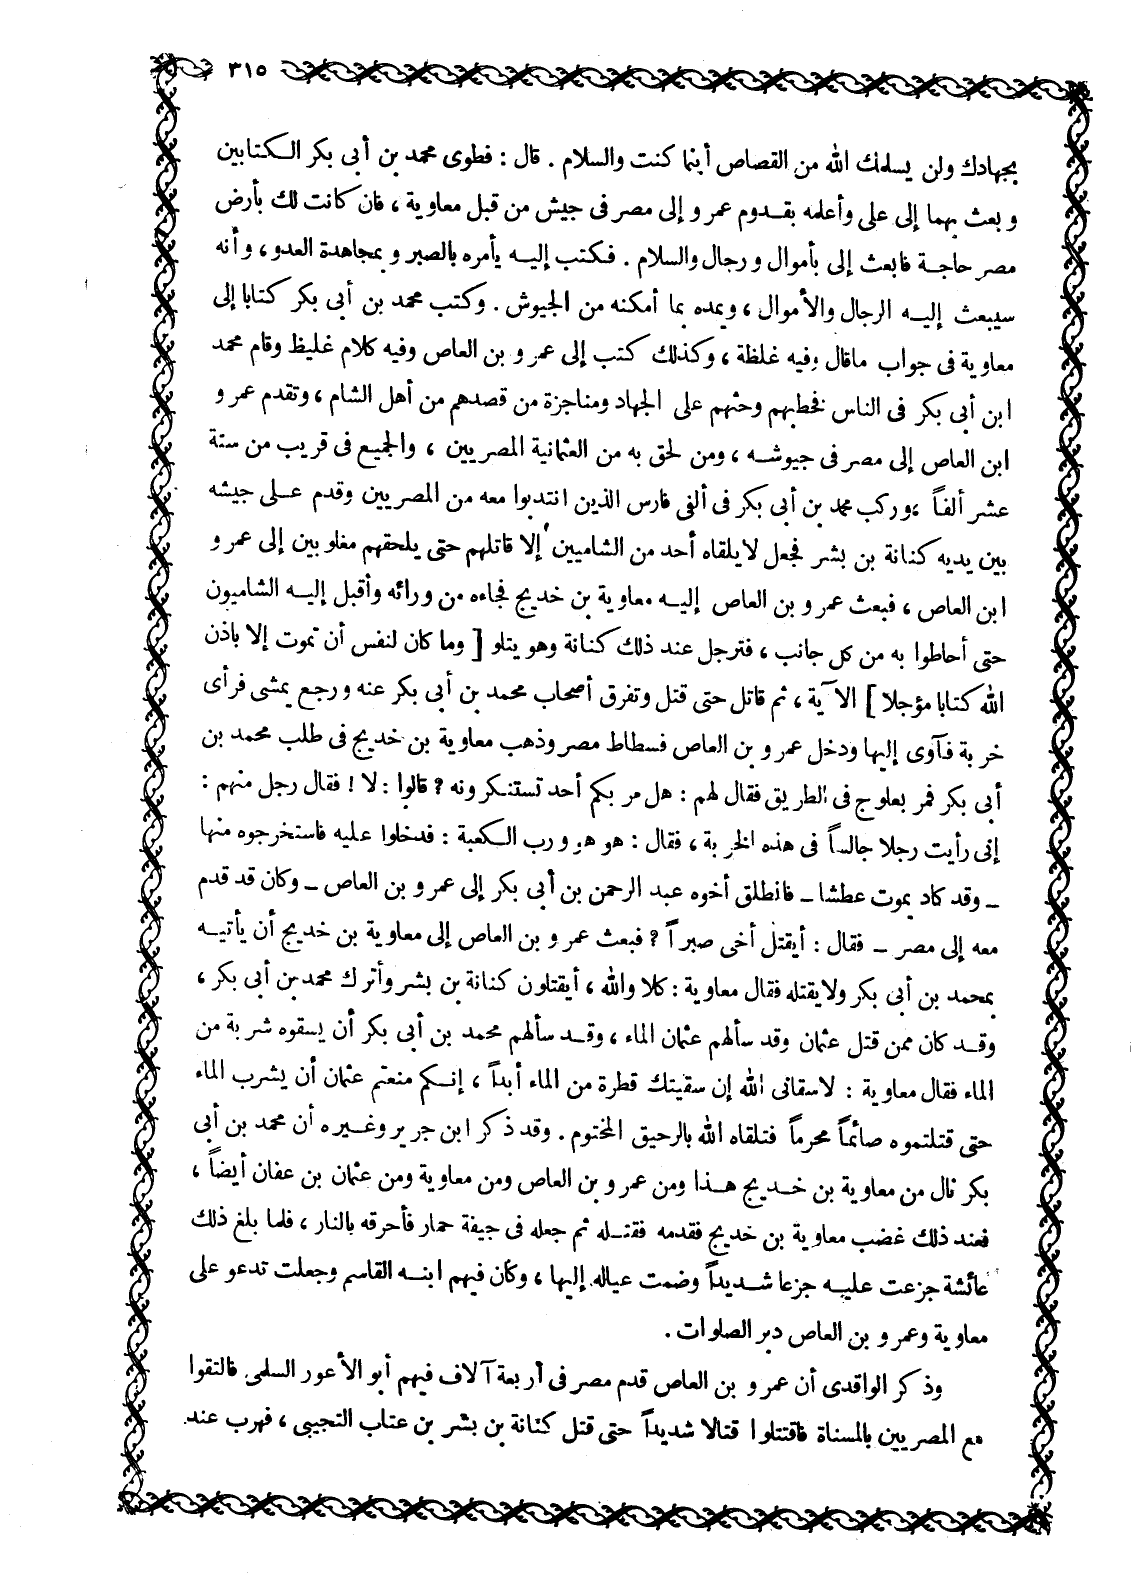 ٣١٥
بجهادك ولن يسلمك الله من القصاص أينما كنت والسلام . قال : فطوى محمد بن أبى بكر الـكتابين
وبعث بهما إلى على وأعلمه بقـدوم عمرو إلى مصر فى جيش من قبل معاوية ، فان كانت لك بأرض
مصر حاجـة فابعث إلى بأموال ورجال والسلام . فـكتب إليـه يأمره بالصبر وبمجاهدة العدو ، وأنه
سيبعث إليـه الرجال والأموال ، ويمده بما أمكنه من الجيوش . وكتب محمد بن أبى بكر كتابا إلى
معاوية فى جواب ماقال وفيه غلظة ، وكذلك كتب إلى عمرو بن العاص وفيه كلام غليظ وقام محمد
ابن أبى بكر فى الناس فخطبهم وحثهم على الجهاد ومناجزة من قصدهم من أهل الشام ، وتقدم عمرو
ابن العاص إلى مصر فى جيوشـه ، ومن لحق به من العثمانية المصريين ، والجميع فى قريب من ستة
عشر ألفاً ، وركب محمد بن أبى بكر فى ألفى فارس الذين انتدبوا معه من المصريين وقدم عـلى جيشه
بين يديه كنانة بن بشر فجعل لا يلقاه أحد من الشاميين إلا قاتلهم حتى يلحقهم مغلوبين إلى عمرو
ابن العاص ، فبعث عمرو بن العاص إليـه معاوية بن خديج فجاءه من ورائه وأقبل إليـه الشاميون
حتى أحاطوا به من كل جانب ، فترجل عند ذلك كنانة وهو يتلو [ وما كان لنفس أن تموت إلا باذن
الله كتابا مؤجلا ] الآية ، ثم قاتل حتى قتل وتفرق أصحاب محمد بن أبى بكر عنه ورجع يمشى فرأى
خربة فآوى إليها ودخل عمرو بن العاص فسطاط مصر وذهب معاوية بن خديج فى طلب محمد بن
أبى بكر فمر بعلوج فى الطريق فقال لهم : هل مر بكم أحد تستنـكرونه ؟ قالوا : لا ! فقال رجل منهم :
إنى رأيت رجلا جالساً فى هذه الخربة ، فقال : هو هو ورب الـكعبة : فدخلوا عليه فاستخرجوه منها
ــ وقد كاد يموت عطشا ــ فانطلق أخوه عبد الرحمن بن أبى بكر إلى عمرو بن العاص ــ وكان قد قدم
معه إلى مصر ــ فقال : أيقتل أخى صبراً ؟ فبعث عمرو بن العاص إلى معاوية بن خديج أن يأتيـه
بمحمد بن أبى بكر ولا يقتله فقال معاوية : كلا والله ، أيقتلون كنانة بن بشر وأترك محمد بن أبى بكر ،
وقـد كان ممن قتل عثمان وقد سألهم عثمان الماء ، وقـد سألهم محمد بن أبى بكر أن يسقوه شربة من
الماء فقال معاوية : لا سقانى الله إن سقيتك قطرة من الماء أبداً ، إنـكم منعتم عثمان أن يشرب الماء
حتى قتلتموه صائماً محرماً فتلقاه الله بالرحيق المختوم . وقد ذكر ابن جرير وغيره أن محمد بن أبى
بكر نال من معاوية بن خـديج هـذا ومن عمرو بن العاص ومن معاوية ومن عثمان بن عفان أيضاً ،
فعند ذلك غضب معاوية بن خديج فقدمه فقتـله ثم جعله فى جيفة حمار فأحرقه بالنار ، فلما بلغ ذلك
عائشة جزعت عليـه جزعا شـديداً وضمت عياله إليها ، وكان فيهم ابنـه القاسم وجعلت تدعو على
معاوية وعمرو بن العاص دبر الصلوات .
وذكر الواقدى أن عمرو بن العاص قدم مصر فى أربعة آلاف فيهم أبو الأعور السلمى فالتقوا
مع المصريين بالمسناة فاقتتلوا قتالا شديداً حتى قتل كنانة بن بشر بن عتاب التجيبى ، فهرب عند